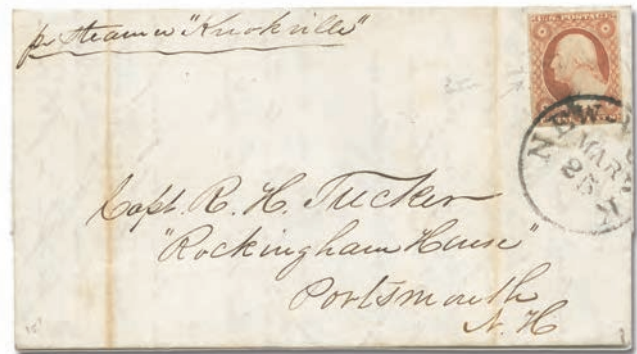 pr Steamer "Knoxville"
U.S. POSTAGE
NEW-YORK
MAR
25
Capt. R. H. Tucker
"Rockingham House"
Portsmouth
N. H